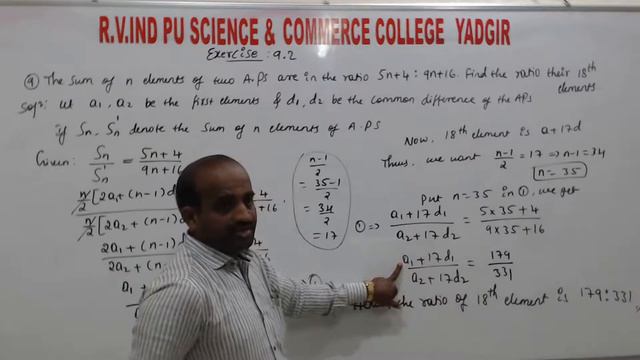 R.V.IND PU SCIENCE & COMMERCE COLLEGE YADGIR
Exercise : 9.2
⑨ The sum of n elements of two A.PS are in the ratio 5n+4 : 9n+16. Find the ratio their 18th elements
Solⁿ: Let a1, a2 be the first elements & d1, d2 be the common difference of the APs
if Sn, Sn' denote the sum of n elements of A.PS
Given: Sn/Sn' = (5n+4)/(9n+16)
n/2[2a1+(n-1)d
n/2[2a2+(n-1)
+4
+16
2a1+(n-1)d
2a2+(n-1)
a1+
n-1/2
= 35-1/2
= 34/2
= 17
Now, 18th element is a+17d
Thus, we want n-1/2 = 17 ⇒ n-1 = 34
n = 35
Put n = 35 in ①, we get
① ⇒ (a1+17d1)/(a2+17d2) = (5×35+4)/(9×35+16)
(a1+17d1)/(a2+17d2) = 179/331
the ratio of 18th element is 179:331